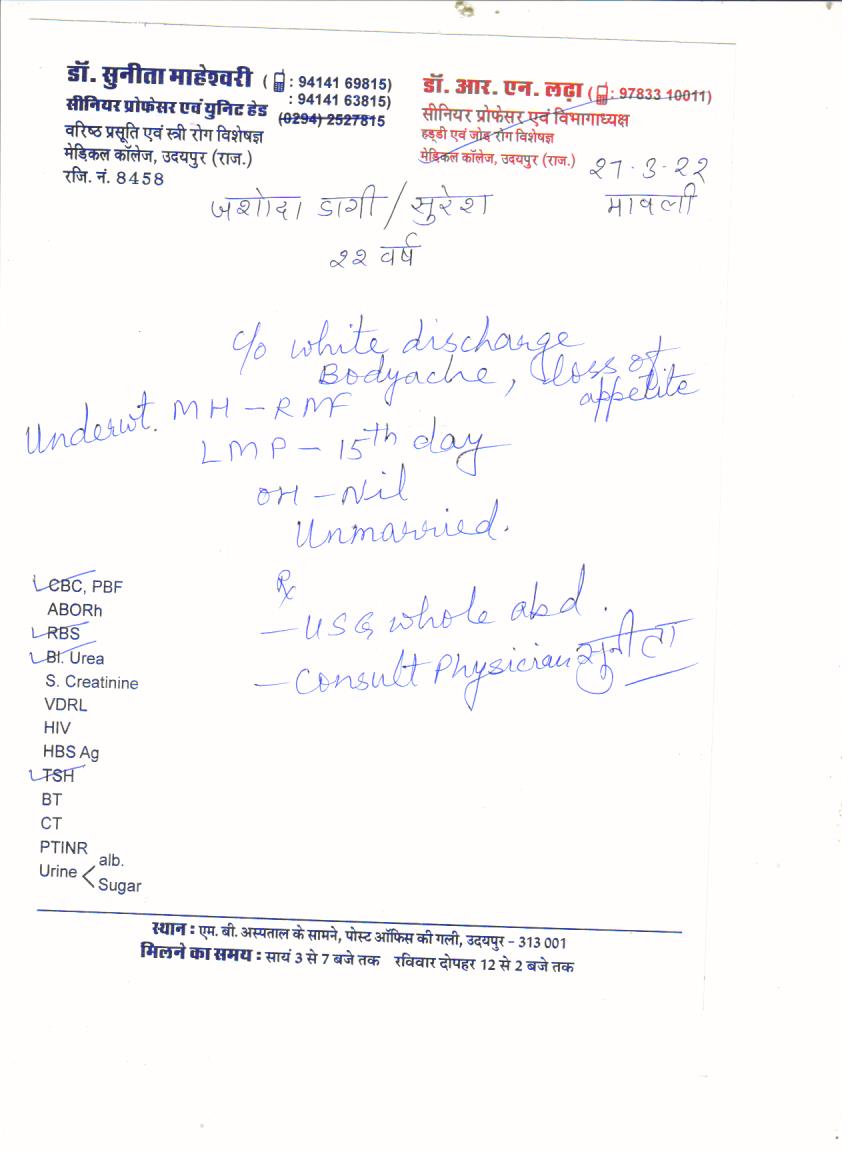 डॉ. सुनीता माहेश्वरी ( : 94141 69815)
: 94141 63815)
सीनियर प्रोफेसर एवं युनिट हेड (0294) 2527815
वरिष्ठ प्रसूति एवं स्त्री रोग विशेषज्ञ
मेडिकल कॉलेज, उदयपुर (राज.)
रजि. नं. 8458
डॉ. आर. एन. लढ़ा ( : 97833 10011)
सीनियर प्रोफेसर एवं विभागाध्यक्ष
हड्डी एवं जोड़ रोग विशेषज्ञ
मेडिकल कॉलेज, उदयपुर (राज.)
२७·३·२२
जशोदा डागी/सुरेश मावली
२२ वर्ष
c/o white discharge
Bodyache, loss of
appetite
Underwt. MH - RMF
LMP - 15th day
OH - Nil
Unmarried.
Rx
- USG whole abd.
- Consult Physician सुनीता
CBC, PBF
ABORh
RBS
Bl. Urea
S. Creatinine
VDRL
HIV
HBS Ag
TSH
BT
CT
PTINR
Urine < alb.
Sugar
स्थान : एम. बी. अस्पताल के सामने, पोस्ट ऑफिस की गली, उदयपुर - 313 001
मिलने का समय : सायं 3 से 7 बजे तक रविवार दोपहर 12 से 2 बजे तक